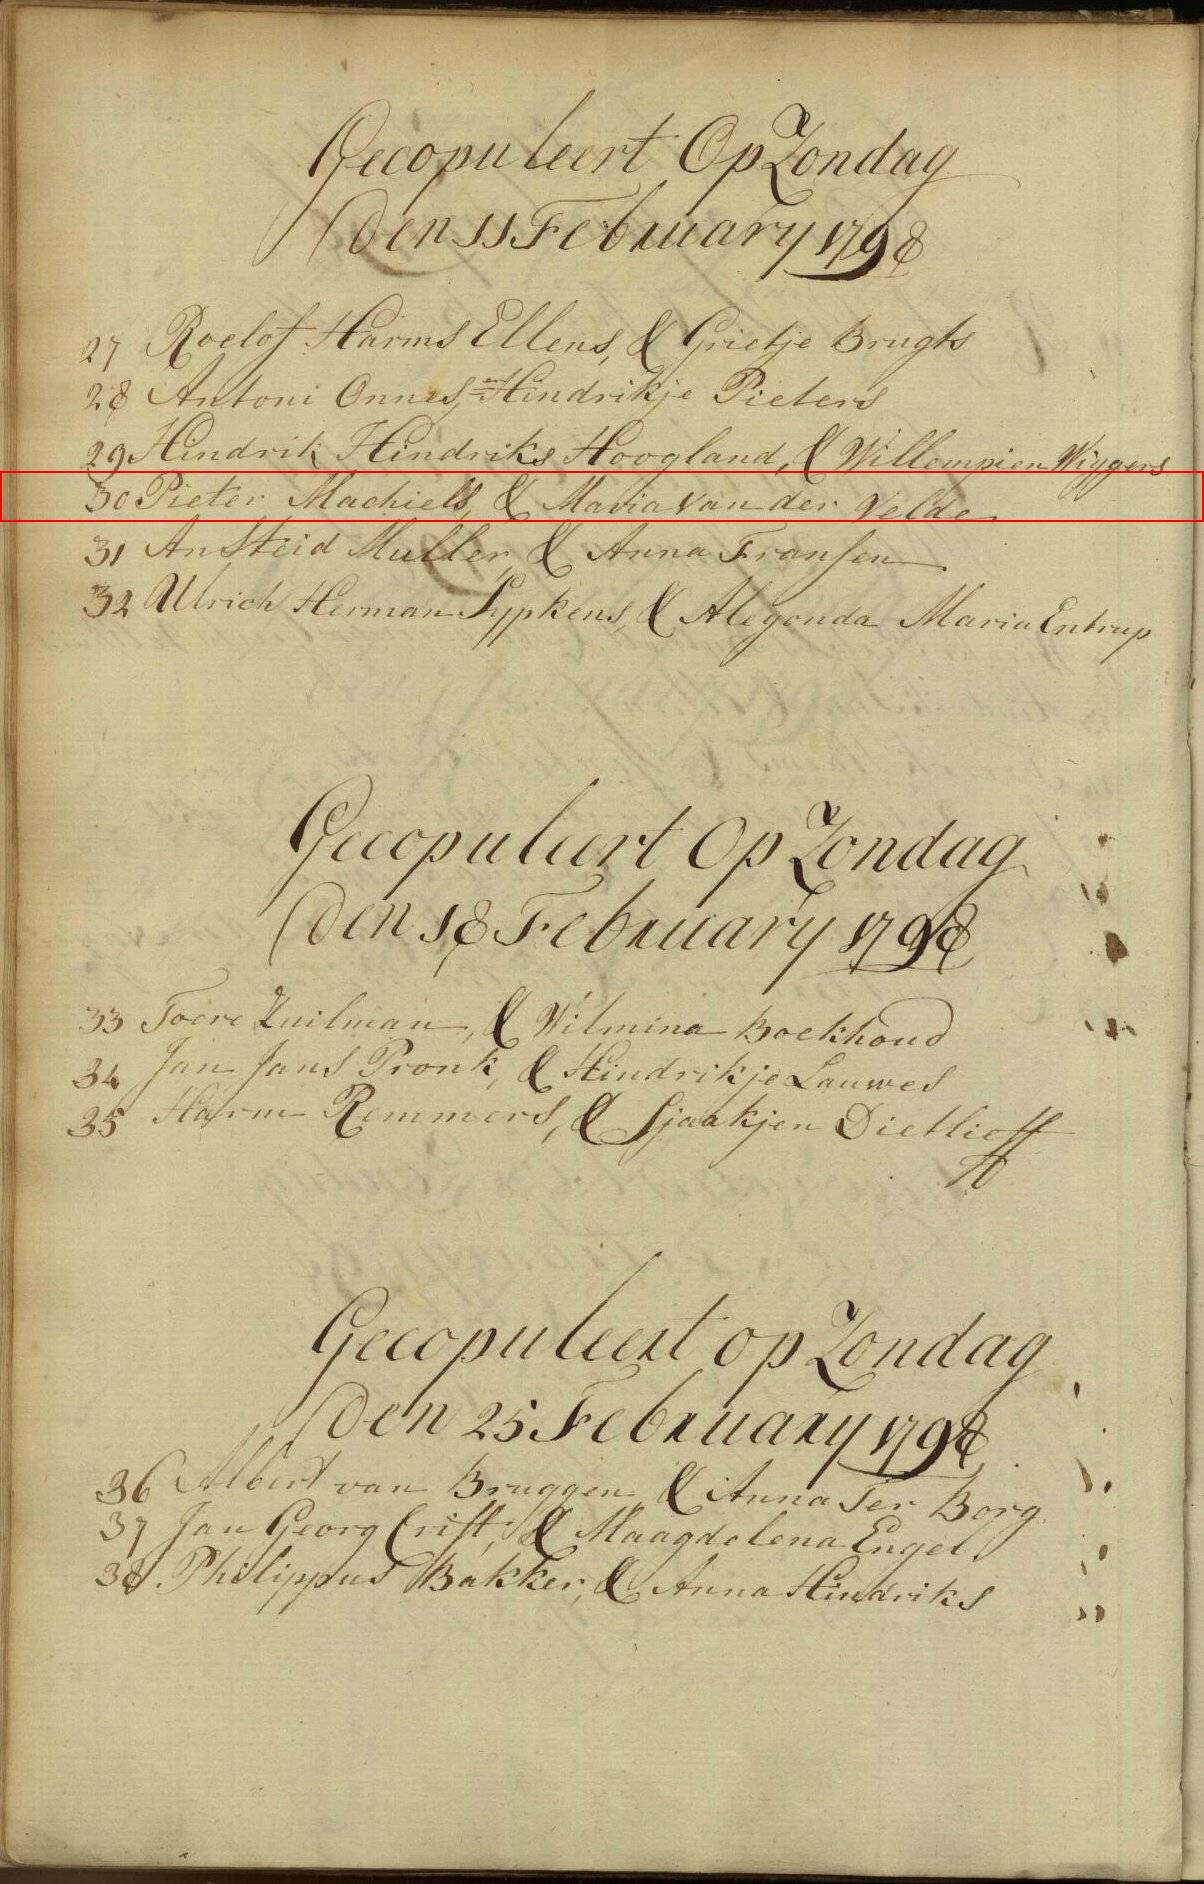 Gecopuleert Op Zondag
Den 11 February 1798
27 Roelof Harms Ellens, & Grietje Brugts
28 Antoni Onnes, en Hindrikje Pieters
29 Hindrik Hindriks Hoogland, & Willempien Wiggers
30 Pieter Machiels, & Maria van der Velde
31 Ansteid Muller, & Anna Fransen
32 Ulrich Herman Sypkens, & Alegonda Maria Entrup
Gecopuleert Op Zondag
Den 18 February 1798
33 Foere Zuilman, & Wilmina Boekhoud
34 Jan Jans Pronk, & Hindrikje Lauwes
35 Harm Remmers, & Sjaakjen Diethoff
Gecopuleert op Zondag
Den 25 February 1798
36 Albert van Bruggen & Anna Ter Borg
37 Jan Georg Crist, & Maagdelena Engel
38 Philippus Bakker, & Anna Hindriks